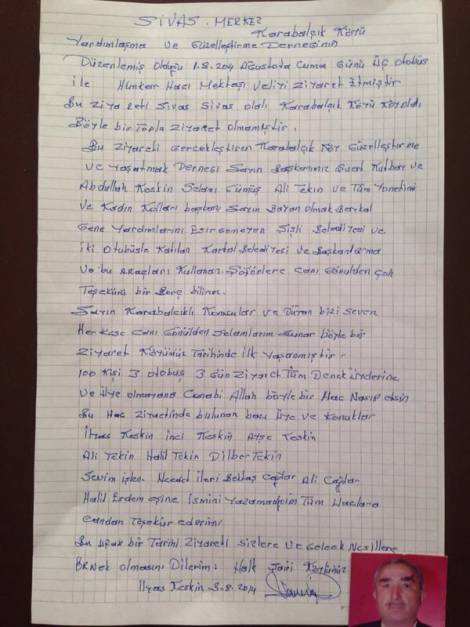 SİVAS. MERKEZ
Karabalçık Köyü
Yardımlaşma ve Güzelleştirme Derneğinin
Düzenlemiş Olduğu 1.8.2014 Ağustosta Cuma Günü Üç otobüs
ile Hünkar Hacı Mektaşı Veliyi Ziyaret Etmiştir
Bu ziyareti Sivas Sivas olalı Karabalçık Köyü Köy oldı
Böyle bir Toplu Ziyaret olmamıştır.
Bu Ziyareti Gerçekleştiren Karabalçık Köy Güzelleştirme
ve Yaşatmak Derneği Sayın Başkanımız ve
Abdullah Keskin Selami Gümüş Ali Tekin ve Tüm Yönetimi
ve Kadın Kolları başkanı Sayın Bayan
Gene Yardımlarını Esirgemeyen Şişli Belediyesi ve
iki Otobüsle Katılan Kartal Belediyesi ve Başkanlarıma
ve bu araçları Kullanan Şöförlere canı Gönülden çok
Teşekürü bir Borç bilirim.
Sayın Karabalcıklı Komşular ve Duran bizi seven
Herkese canı Gönülden Selamlarım Sunar böyle bir
Ziyaret Köyümüz Tarihinde ilk Yaşanmıştır.
100 Kişi 3 otobüs 3 Gün Ziyaret Tüm Dernek üyelerine
ve üye olmayana Cenabi Allah böyle bir Hac Nasip etsin
Bu Hac Ziyaretinde bulunan bazı üye ve Konuklar
İlyas Keskin inci Keskin Ayşe Keskin
Ali Tekin Halil Tekin Dilber Tekin
Necdet ileri Bektaş Çağlar Ali Çağlar
Halil Erdem eşine ismini Yazamadığım Tüm
candan Teşekür ederim
Bu Tarihi Ziyareti sizlere ve Gelecek Nesillere
Örnek olmasını Dilerim: Halk Şairi
İlyas Keskin 8.2014